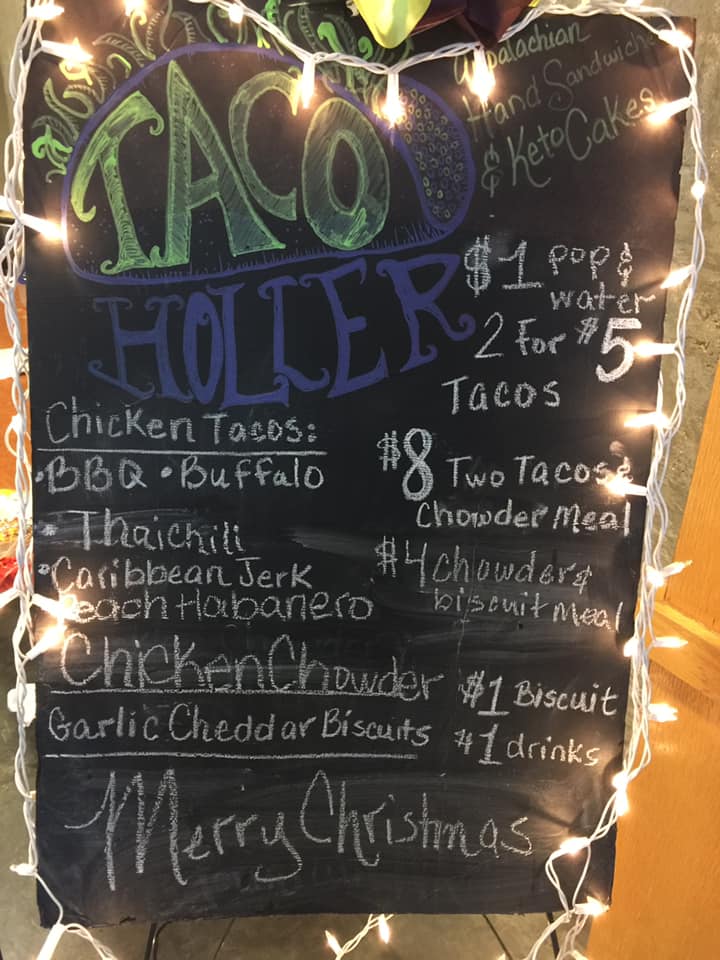 TACO
HOLLER
Appalachian
Hand Sandwiches
& Keto Cakes
$1 pop &
water
2 for $5
Tacos
Chicken Tacos:
• BBQ • Buffalo
• Thaichili
• Caribbean Jerk
Peach Habanero
$8 Two Tacos &
Chowder Meal
$4 chowder &
biscuit meal
Chicken Chowder
Garlic Cheddar Biscuits
$1 Biscuit
$1 drinks
Merry Christmas